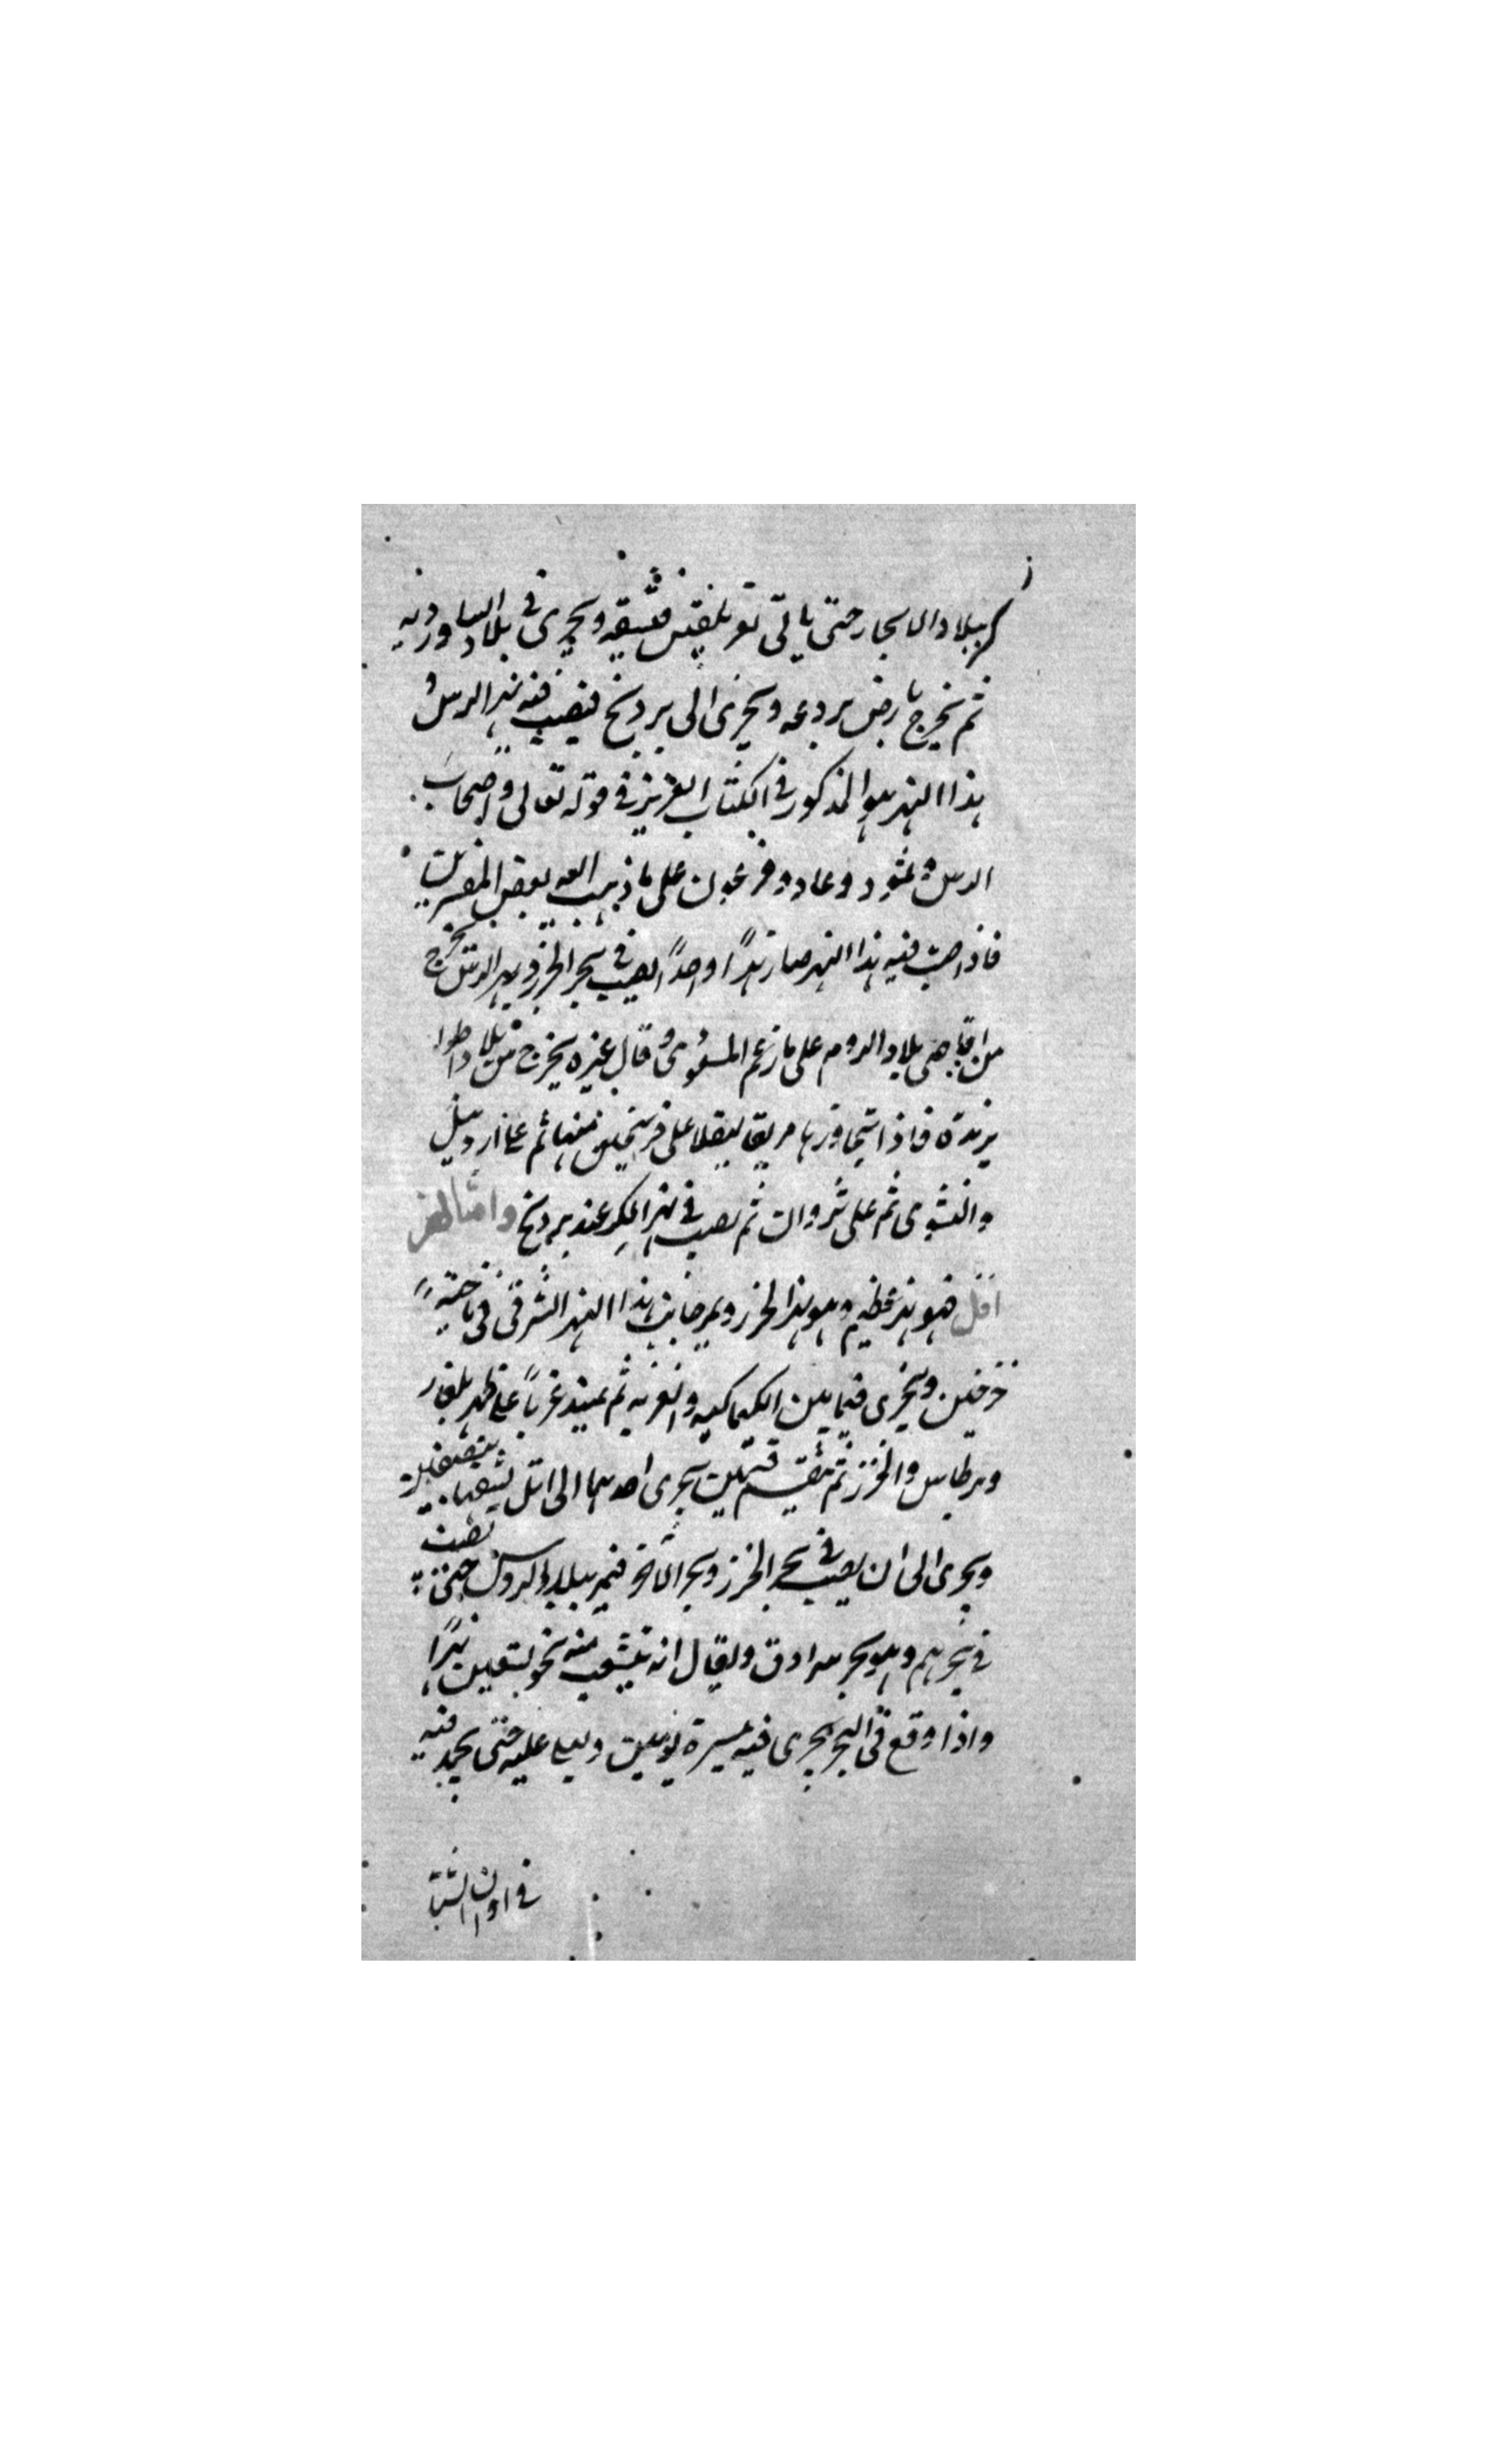 ببلاد الابخار حتى ياتى تغر تفليس فيشقه ويجرى فى بلاد الساورديه
ثم يخرج بارض بردعه ويجرى الى برديج فيصب فيه نهر الرس و
هذا النهر هو المذكور فى الكتاب العزيز فى قوله تعالى واصحاب
الرس وثمود وعاد وفرعون على ما ذهب اليه بعض المفسرين
فاذا صب فيه هذا النهر صار نهرًا واحدًا يصب فى بحر الخزر ونهر الرس يخرج
من اقاصى بلاد الروم على ما زعم المسعودى وقال غيره يخرج من بلاد اطرا
بزندة فاذا تجاوزها مر على ثم على اردبيل
والنشوى ثم على شروان ثم يصب فى نهر الكر عند برديج واما نهر
اتل فهو نهر عظيم وهو نهر الخزر ويمر جانب هذا النهر الشرقى فى ناحيةً
خرخيز ويجرى فيما بين الكيماكيه والغزيه ثم يمتد غربًا على ظهر بلغار
وبرطاس والخزر ثم ينقسم قسمين يجرى احدهما الى اتل يشقها بنصفين
ويجرى الى ان يصب فى بحر الخزر ويجر الاخر فيمر ببلاد الروس حتى يصب
فى بحرهم وهو بحر سرادق ويقال انه يتشعب منه نحو تسعين نهرًا
واذا وقع فى البحر يجرى فيه مسيرة يومين ويعلى عليه حتى يجمد فيه
فى اوان الشتا